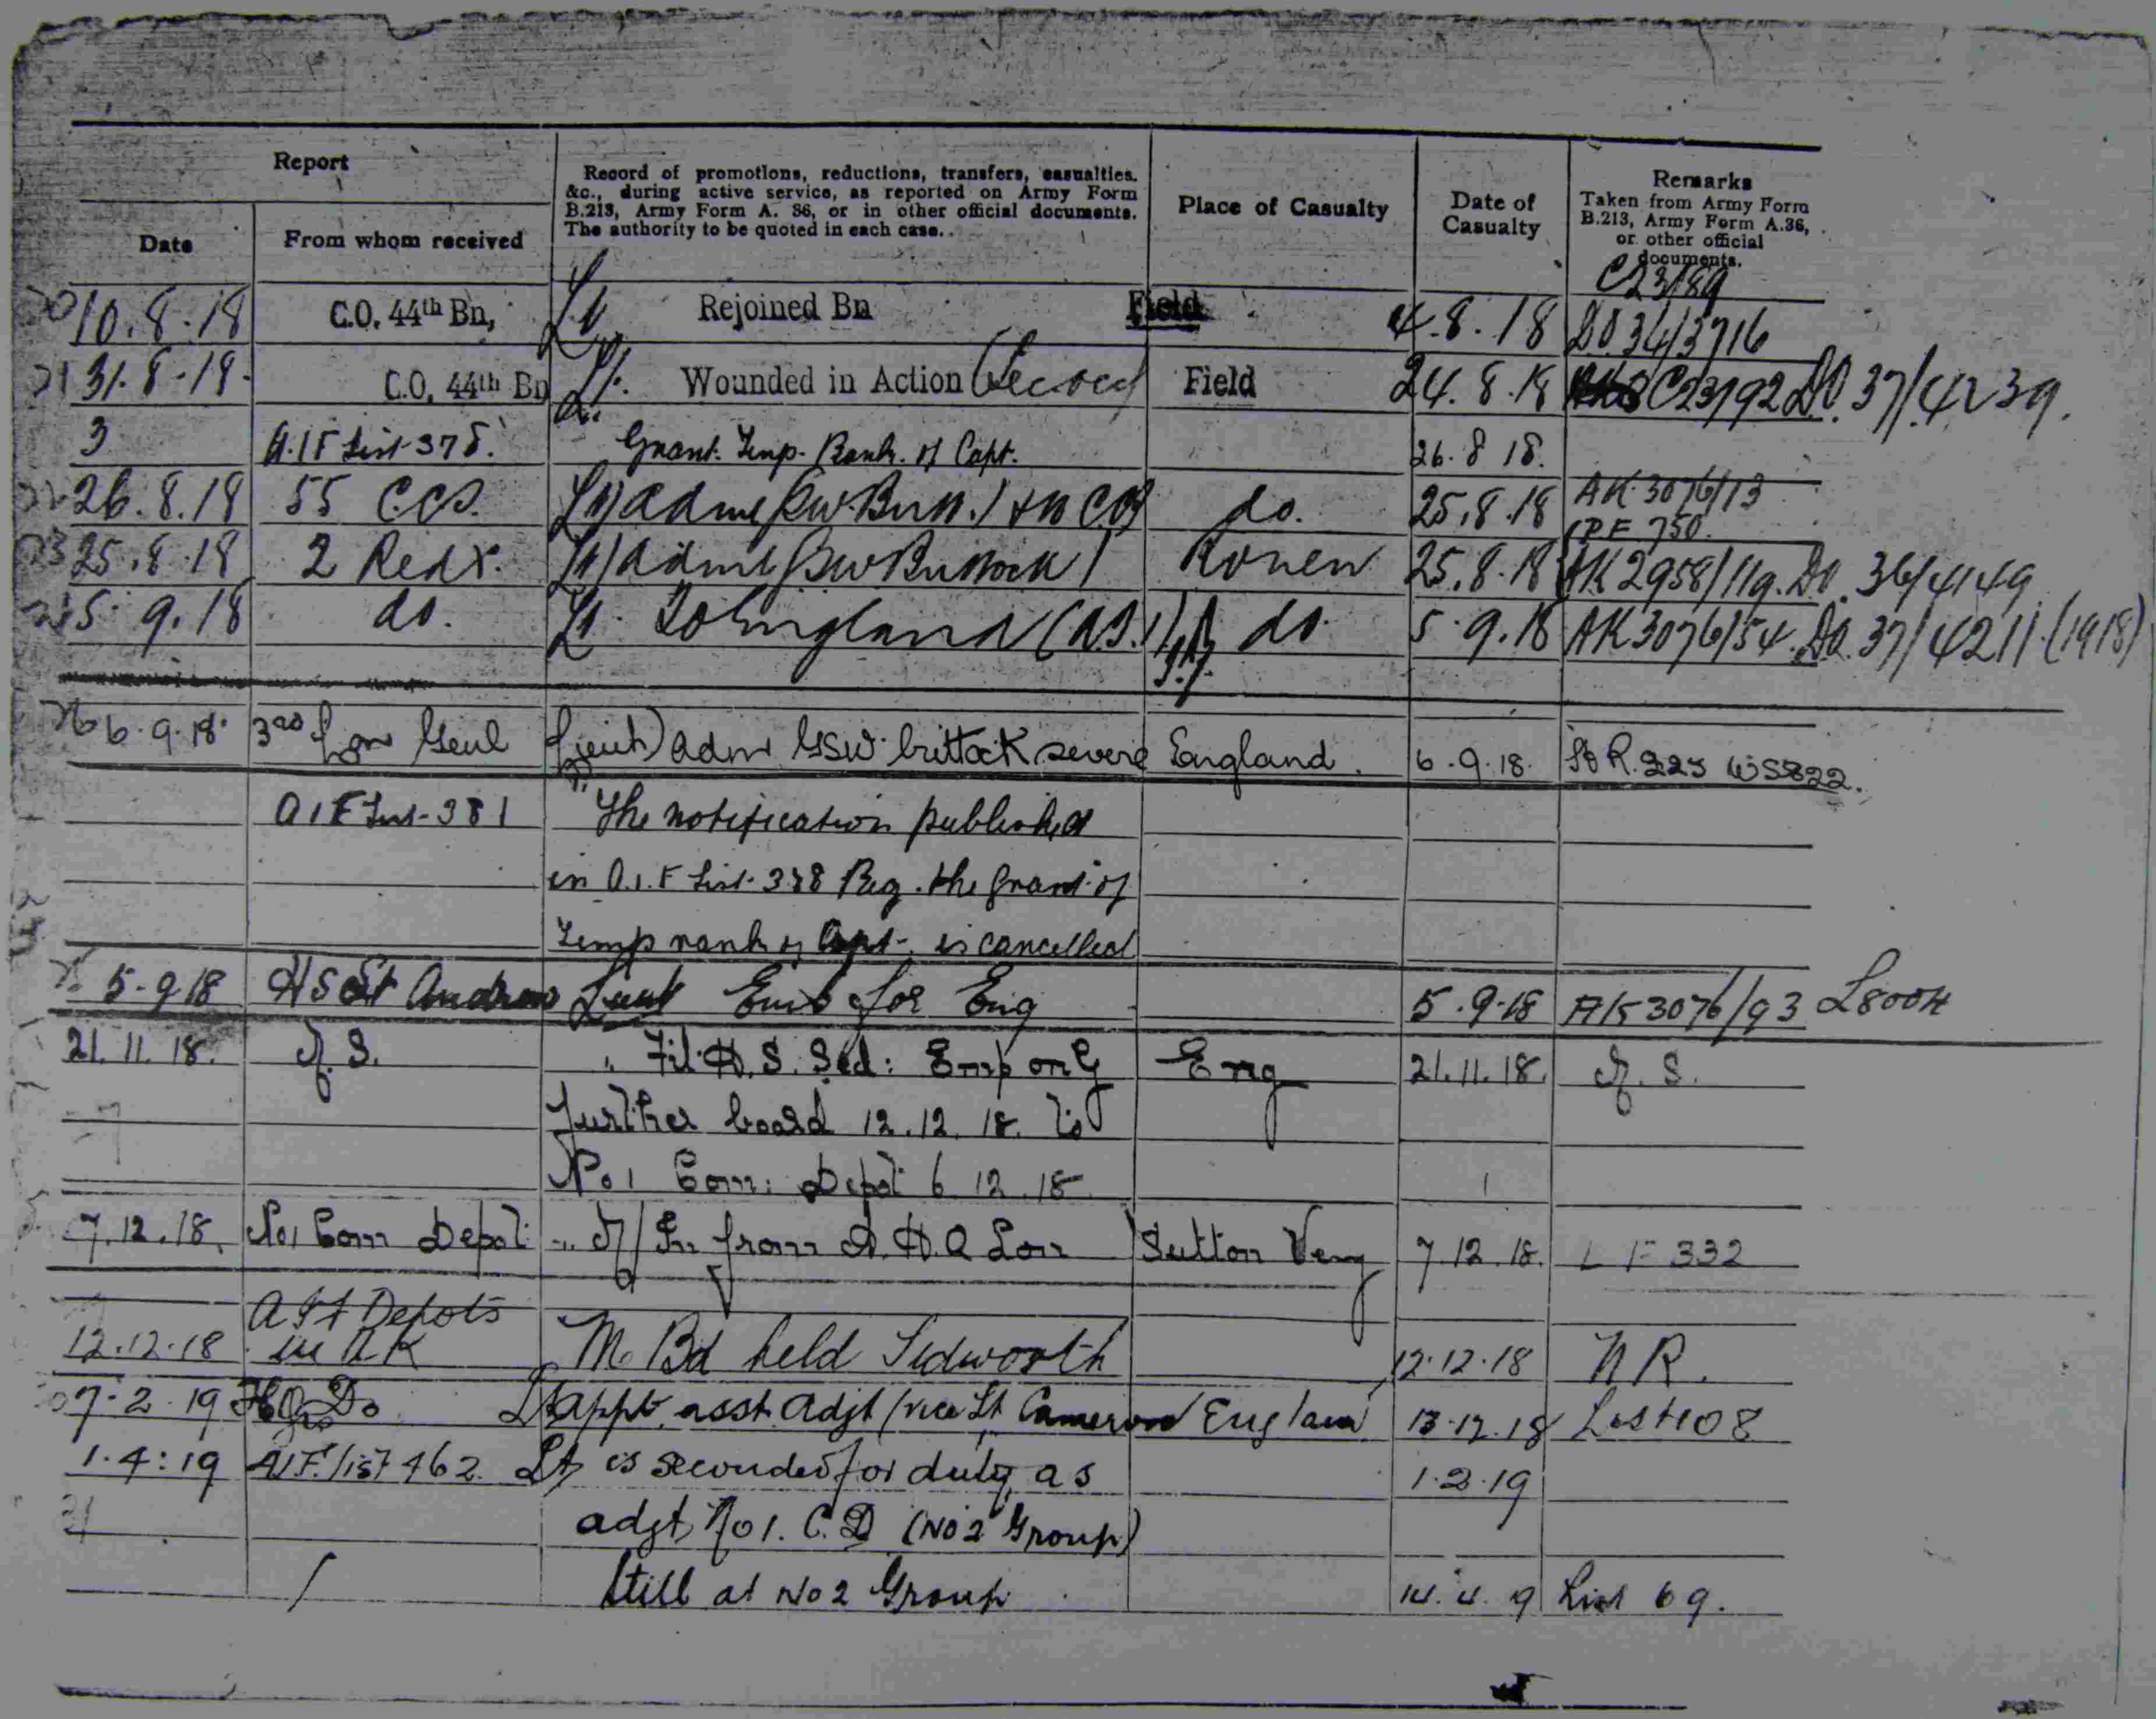 Report
Record of promotions, reductions, transfers, casualties,
&c., during active service, as reported on Army Form
B.213, Army Form A. 36, or in other official documents.
The authority to be quoted in each case.
Place of Casualty
Date of
Casualty
Remarks
Taken from Army Form
B.213, Army Form A.36,
or other official
documents.
Date
From whom received
C23/89
10.8.18 C.O. 44th Bn, Lt Rejoined Bn Field 4.8.18 DO 34/3716
31.8.18. C.O. 44th Bn Lt. Wounded in Action (Second) Field 24.8.18 C23/92 DO. 37/4239.
3 A.I.F List 378. Grant. Temp. Rank. of Capt. 26.8 18.
26.8.18 55 C.C.S. Lt) adm do. 25.8.18 AK 3076/13
750.
25.8.18 2 Red X. Lt) admd Buttock) Rouen 25.8.18 AK 2958/119. DO. 36/4149
5 9.18 do. Lt. To England do. 5.9.18 AK 3076/54. DO. 37/4211 (1918)
6.9.18. 3rd Lon Genl Lieut) adm GSW. buttock severe England. 6.9.18.
A.I.F List 381 The notification published
in A.I.F List. 378 Reg. the grant of
Temp rank of Capt. is cancelled
5.9.18 HS St Andrew Lieut Emb for Eng 5.9.18 AK 3076/93 L8004
21.11.18. " Fit H.S. Sed: Emp only Eng 21.11.18.
further board 12.12.18. To
No 1 Com: Depot 6 12.18
7.12.18. No 1 Com Depot " from A.H.Q Lon Sutton Veny 7.12.18. L F 332
A I F Depots
12.12.18 in UK M Bd held Tidworth 12.12.18 N R.
7.2.19 HQ Do Lt appt. asst. Adjt (vice Lt Cameron England 13.12.18 List 108
1.4.19 A.I.F. list 462. Lt is seconded for duty as 1.2.19
adjt No 1. C. D (No 2 Group)
Still at No 2 Group. 14.4.9 List 69.